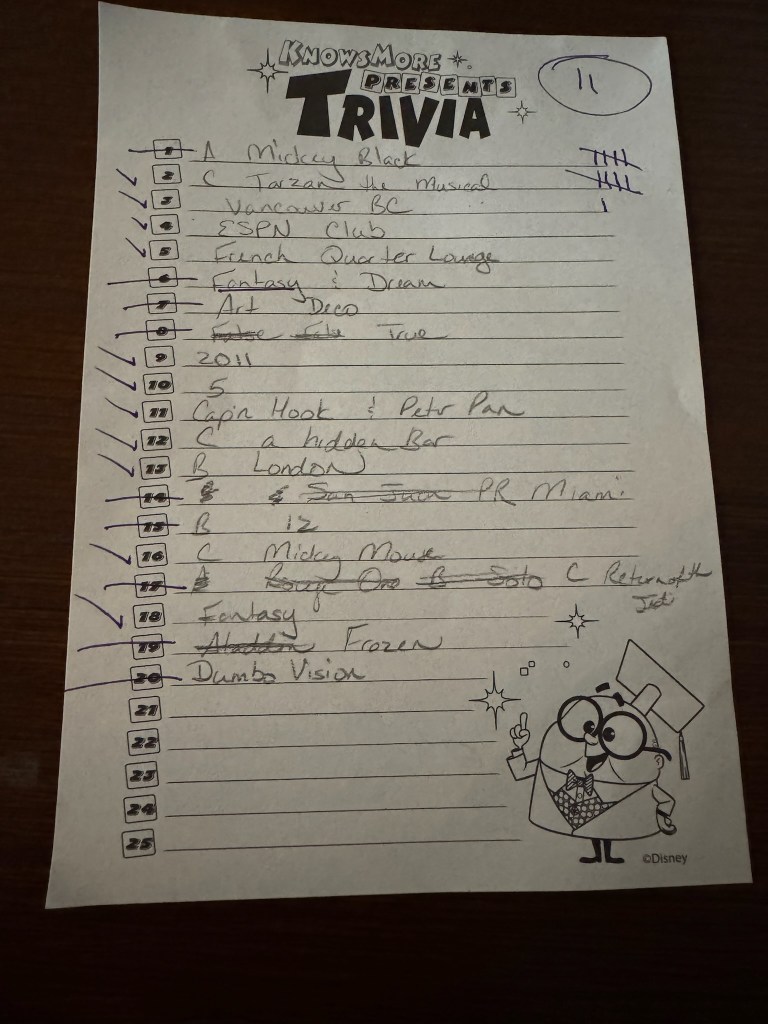 KNOWSMORE
PRESENTS
TRIVIA
11
1 A Mickey Black
2 C Tarzan the Musical
3 Vancouver BC
4 ESPN Club
5 French Quarter Lounge
6 Fantasy & Dream
7 Art Deco
8 False True
9 2011
10 5
11 Capin Hook & Petr Pan
12 C a hidden Bar
13 B London
14 & San Juan PR Miami
15 B 12
16 C Mickey Mouse
17 A Rouge One B Solo C Return of the
Jedi
18 Fantasy
19 Aladdin Frozen
20 Dumbo Vision
21
22
23
24
25
©Disney